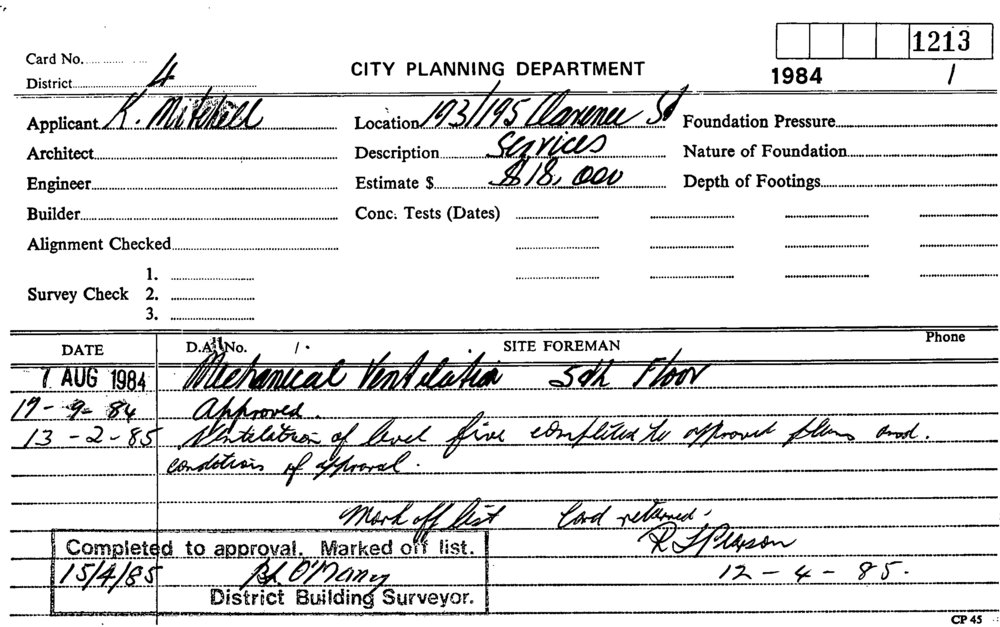 1213
Card No.
CITY PLANNING DEPARTMENT
1984 /
District 4
Applicant K. Mitchell Location 193/195 Clarence St Foundation Pressure
Architect Description Services Nature of Foundation
Engineer Estimate $ $18,000 Depth of Footings
Builder Conc. Tests (Dates)
Alignment Checked
1.
Survey Check 2.
3.
DATE D.A. No. / SITE FOREMAN Phone
1 AUG 1984 Mechanical Ventilation 5th Floor
17-9-84 Approved.
13-2-85 Ventelation of level five completed to approved plans and.
conditions of approval.
Mark off list Card returned.
Completed to approval. Marked off list. R J Pearson
15/4/85 12-4-85.
District Building Surveyor.
CP 45